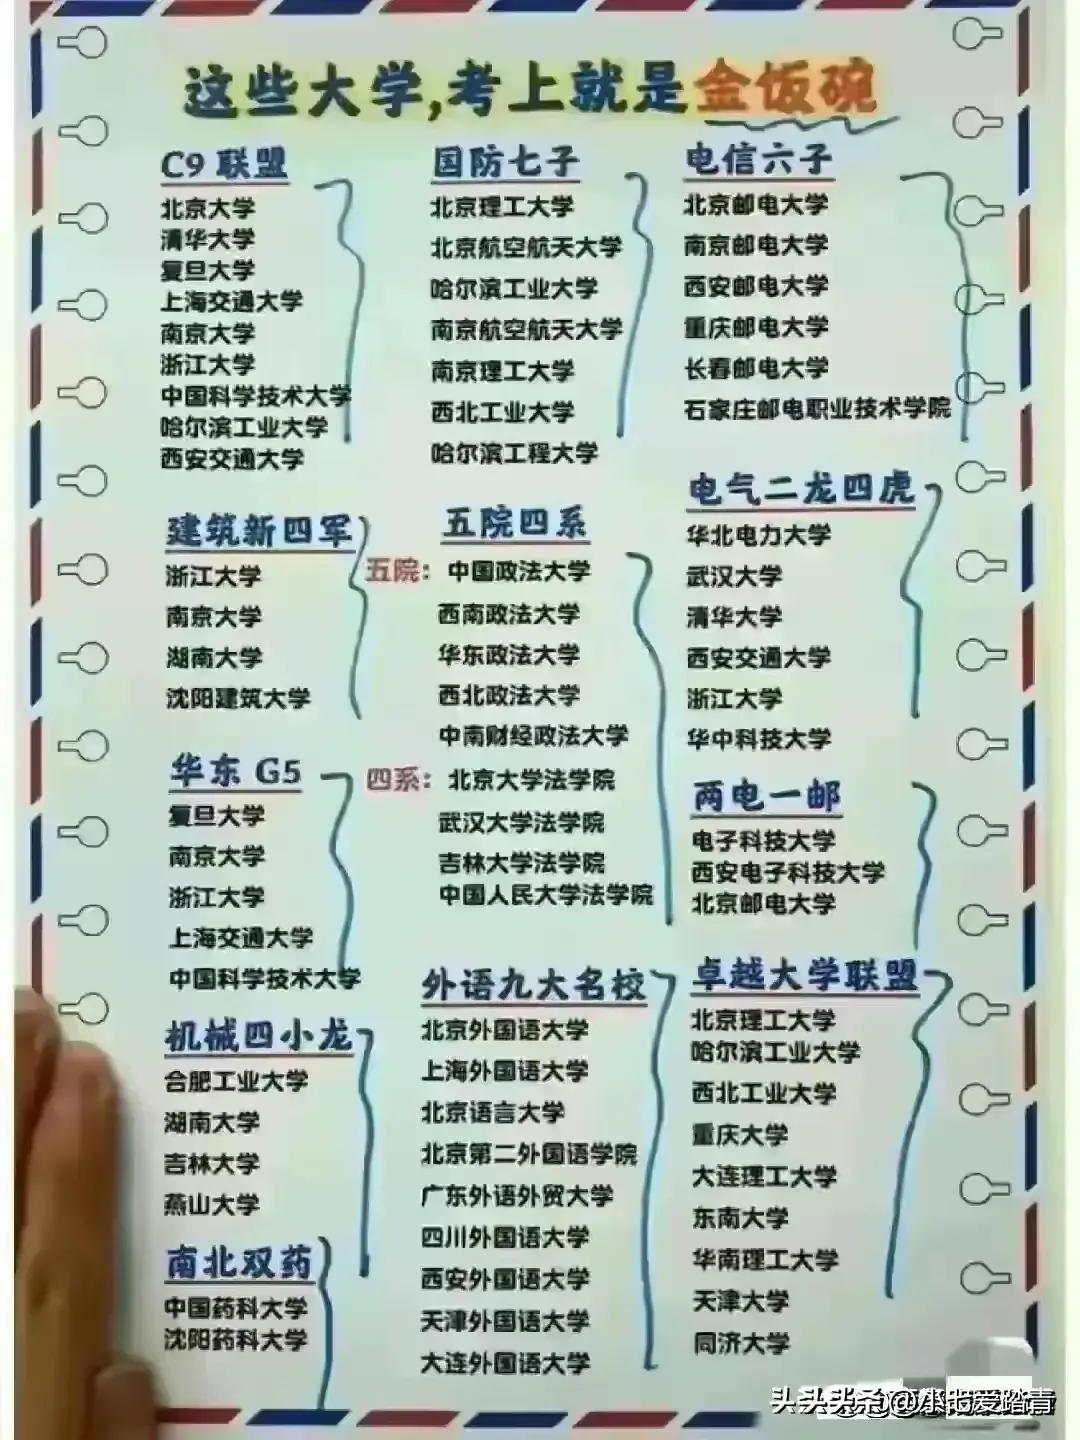 这些大学,考上就是金饭碗
C9 联盟
北京大学
清华大学
复旦大学
上海交通大学
南京大学
浙江大学
中国科学技术大学
哈尔滨工业大学
西安交通大学
国防七子
北京理工大学
北京航空航天大学
哈尔滨工业大学
南京航空航天大学
南京理工大学
西北工业大学
哈尔滨工程大学
电信六子
北京邮电大学
南京邮电大学
西安邮电大学
重庆邮电大学
长春邮电大学
石家庄邮电职业技术学院
建筑新四军
浙江大学
南京大学
湖南大学
沈阳建筑大学
五院四系
五院：中国政法大学
西南政法大学
华东政法大学
西北政法大学
中南财经政法大学
四系：北京大学法学院
武汉大学法学院
吉林大学法学院
中国人民大学法学院
电气二龙四虎
华北电力大学
武汉大学
清华大学
西安交通大学
浙江大学
华中科技大学
华东 G5
复旦大学
南京大学
浙江大学
上海交通大学
中国科学技术大学
两电一邮
电子科技大学
西安电子科技大学
北京邮电大学
机械四小龙
合肥工业大学
湖南大学
吉林大学
燕山大学
外语九大名校
北京外国语大学
上海外国语大学
北京语言大学
北京第二外国语学院
广东外语外贸大学
四川外国语大学
西安外国语大学
天津外国语大学
大连外国语大学
卓越大学联盟
北京理工大学
哈尔滨工业大学
西北工业大学
重庆大学
大连理工大学
东南大学
华南理工大学
天津大学
同济大学
南北双药
中国药科大学
沈阳药科大学